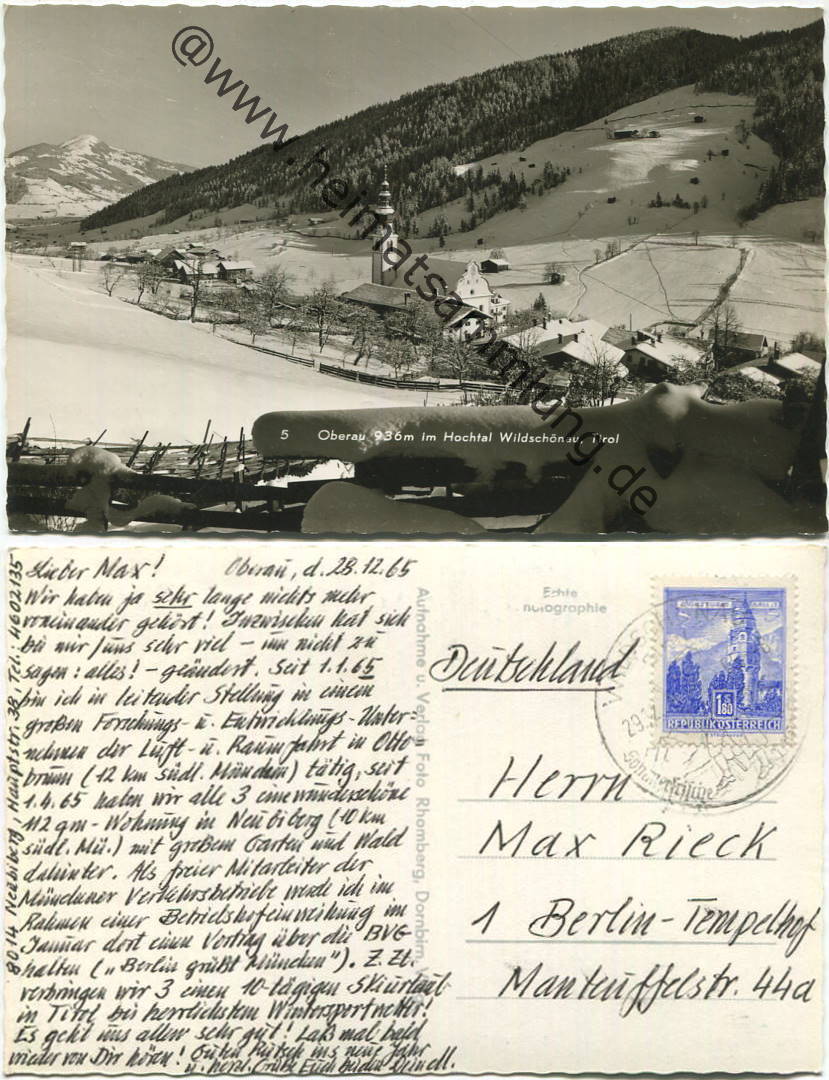 @www.heimatsammlung.de
5 Oberau 936m im Hochtal Wildschönau, Tirol
Lieber Max! Oberau, d. 28.12.65
Wir haben ja sehr lange nichts mehr
voneinander gehört! Inzwischen hat sich
bei mir/uns sehr viel - um nicht zu
sagen: alles! - geändert. Seit 1.1.65
bin ich in leitender Stellung in einem
großen Forschungs- u. Entwicklungs-Unter-
nehmen der Luft- u. Raumfahrt in Otto
brunn (12 km südl. München) tätig, seit
1.4.65 haben wir alle 3 eine wunderschöne
112 qm-Wohnung in Neubiberg (10 km
südl. Mü.) mit großem Garten und Wald
dahinter. Als freier Mitarbeiter der
Münchener Verkehrsbetriebe werde ich im
Rahmen einer Betriebshofeinweihung im
Januar dort einen Vortrag über die BVG
halten („Berlin grüßt München"). Z. Zt.
verbringen wir 3 einen 10-tägigen Skiurlaub
in Tirol bei herrlichstem Wintersportwetter!
Es geht uns allen sehr gut! Laß mal bald
wieder von Dir hören! Guten Rutsch ins neue Jahr
u. herzl. Grüße Euch beiden
8014 Neubiberg, Hauptstr. 38, Tel.: 4602135
Aufnahme u. Verlag Foto Rhomberg, Dornbirn,
Echte
Deutschland
1.80
REPUBLIK ÖSTERREICH
29.
Sommerfrische
Herrn
Max Rieck
1 Berlin-Tempelhof
Manteuffelstr. 44a